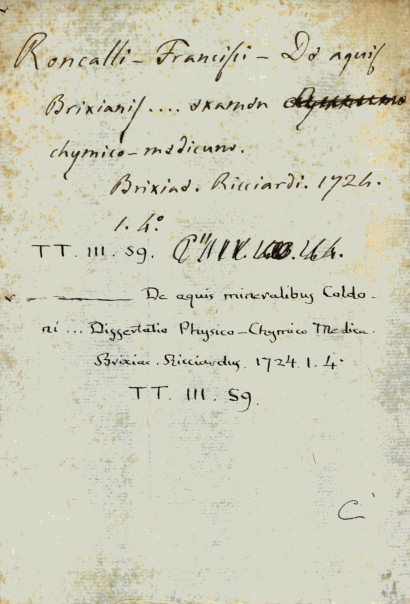 Roncalli - Francisci - De aquis
Brixianis .... examen
chymico-medicum.
Brixiae. Ricciardi. 1724.
1. 4º
TT. III. 59.
De aquis mineralibus Coldo-
ni ... Dissertatio Physico-Chymico Medica.
Brixiae. Ricciardus. 1724. 1. 4.
TT. III. 59.
C